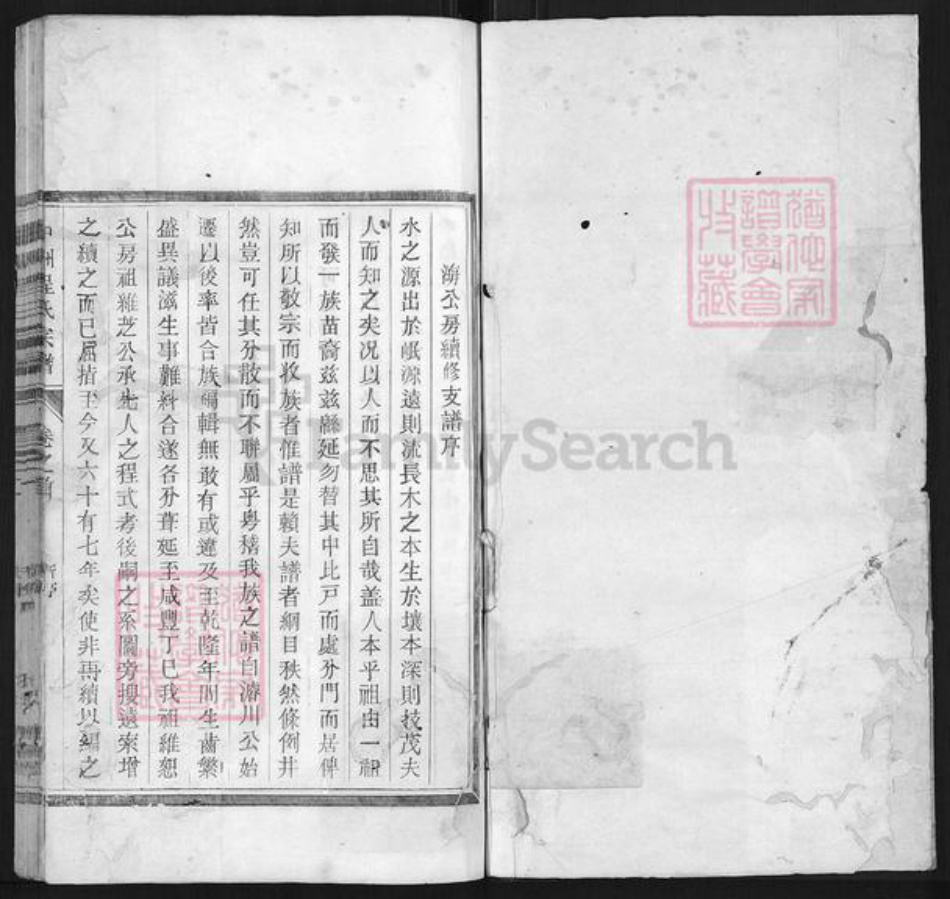 渀公房續修支譜序
水之源出於岷源遠則流長木之本生於壤本深則技茂夫
人而知之矣况以人而不思其所自哉盖人本乎祖由一祖
而發一族苗裔兹兹緜延勿替其中比戸而處分門而居俾
知所以敬宗而收族者惟譜是賴夫譜者綱目秩然條例井
然豈可任其分散而不聯屬乎粤稽我族之譜自濬川公始
遷以後率皆合族編輯無敢有或違及至乾隆年間生齒繁
盛異議滋生事難糾合遂各分葺延至咸豐丁巳我祖維恕
公房祖維芝公承先人之程式考後嗣之系圖旁搜遠索增
之續之而已屈指至今又六十有七年矣使非再續以編之
程氏宗譜 卷之首
猶他家譜學會收藏
FamilySearch